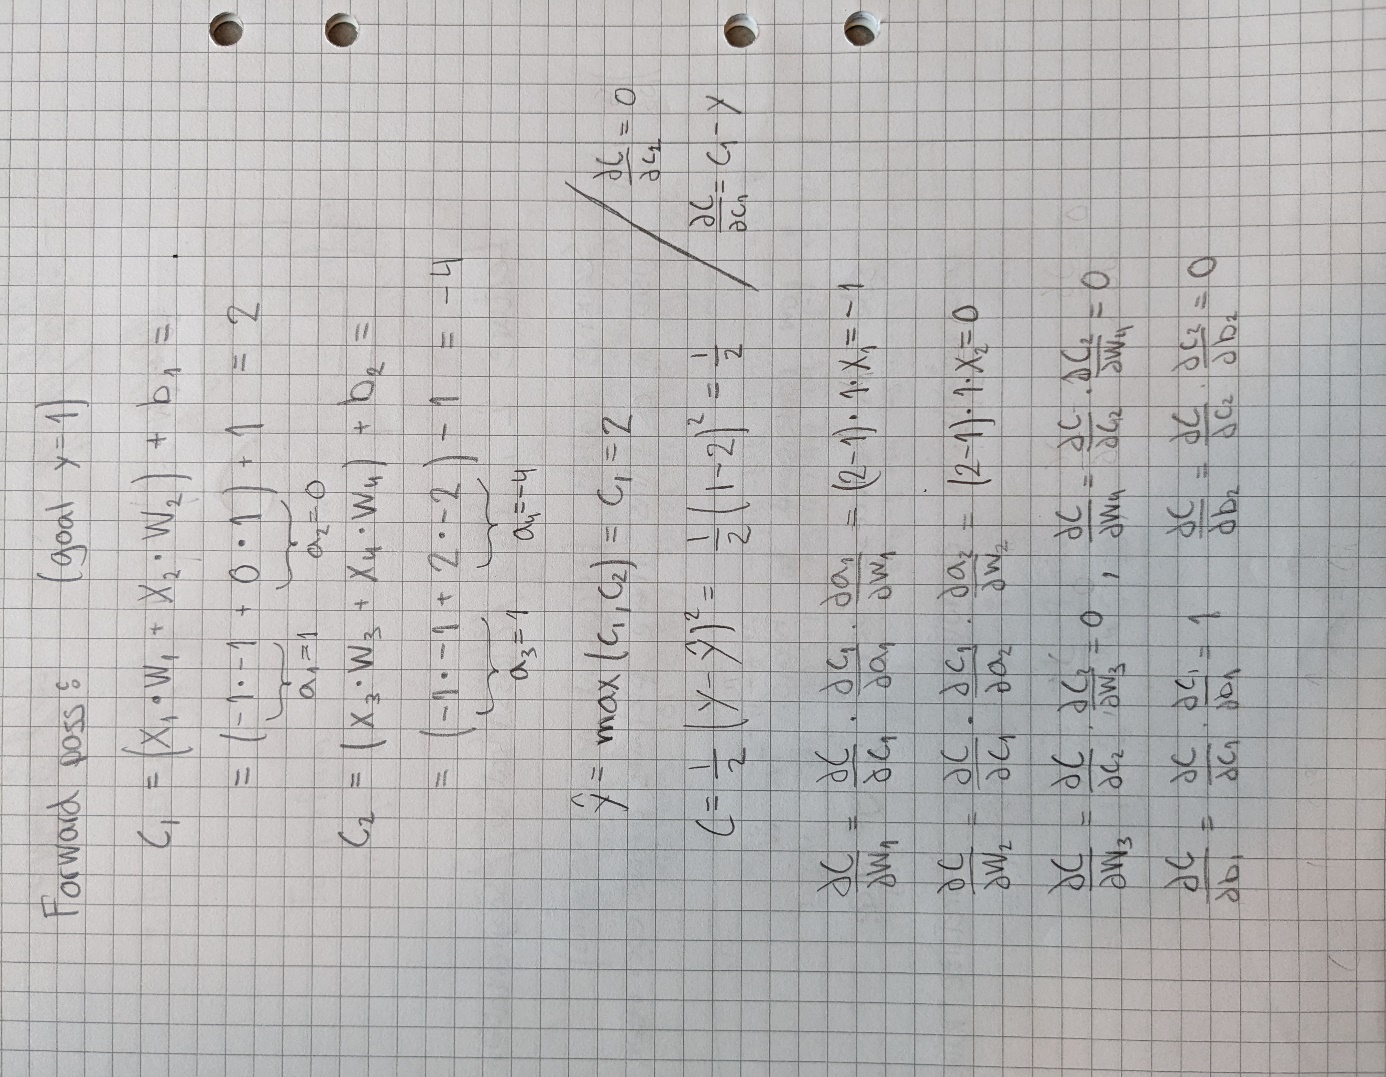 Forward pass: (goal y=1)
C₁ = (X₁·W₁ + X₂·W₂) + b₁ =
= (-1·-1 + 0·1) + 1 = 2
a₁=1 a₂=0
C₂ = (X₃·W₃ + X₄·W₄) + b₂ =
= (-1·-1 + 2·-2) - 1 = -4
a₃=1 a₄=-4
ŷ = max(C₁,C₂) = C₁ = 2
∂C/∂C₂ = 0
C = 1/2 (y-ŷ)² = 1/2 (1-2)² = 1/2
∂C/∂C₁ = C₁-y
∂C/∂W₁ = ∂C/∂C₁ · ∂C₁/∂a₁ · ∂a₁/∂W₁ = (2-1)·1·X₁ = -1
∂C/∂W₂ = ∂C/∂C₁ · ∂C₁/∂a₂ · ∂a₂/∂W₂ = (2-1)·1·X₂ = 0
∂C/∂W₃ = ∂C/∂C₂ · ∂C₂/∂W₃ = 0 , ∂C/∂W₄ = ∂C/∂C₂ · ∂C₂/∂W₄ = 0
∂C/∂b₁ = ∂C/∂C₁ · ∂C₁/∂b₁ = 1 ∂C/∂b₂ = ∂C/∂C₂ · ∂C₂/∂b₂ = 0